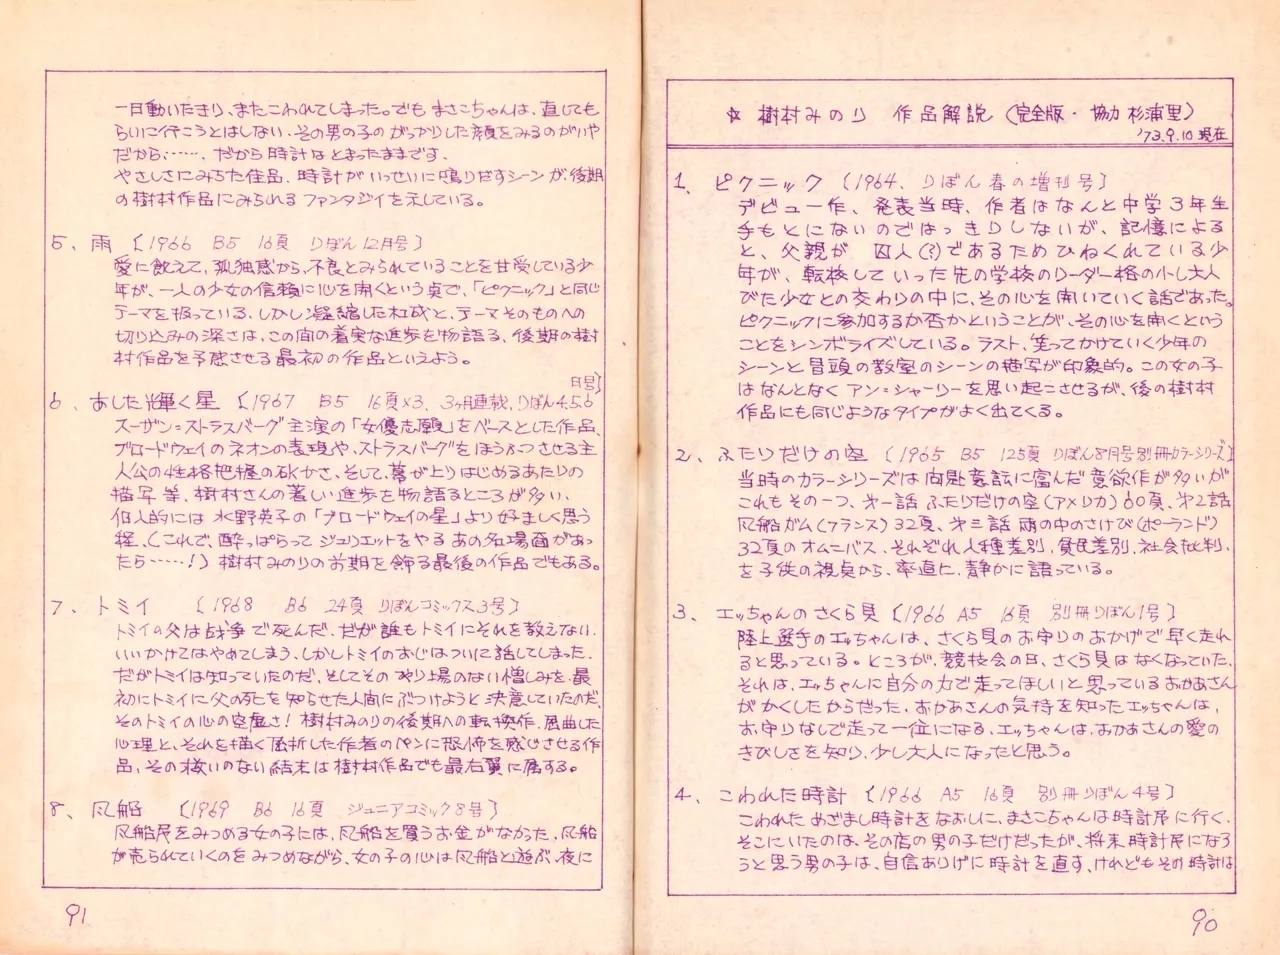 ☆ 樹村みのり 作品解説 (完全版・協力 杉浦里)
'73.9.10 現在
1、ピクニック 〔1964、りぼん春の増刊号〕
デビュー作、発表当時、作者はなんと中学3年生
手もとにないのではっきりしないが、記憶による
と、父親が 囚人(?)であるためひねくれている少
年が、転校していった先の学校のリーダー格の小し大人
びた少女との交わりの中に、その心を開いていく話であった。
ピクニックに参加するか否かということが、その心を開くという
ことをシンボライズしている。ラスト、笑ってかけていく少年の
シーンと冒頭の教室のシーンの描写が印象的。この女の子
はなんとなく アン=シャーリーを思い起こさせるが、後の樹村
作品にも同じようなタイプがよく出てくる。
2、ふたりだけの空 〔1965 B5 125頁 りぼん8月号別冊カラーシリーズ〕
当時のカラーシリーズは 意に富んだ意欲作が多いが
これもその一つ、第一話 ふたりだけの空(アメリカ)60頁、第2話
風船ガム(フランス)32頁、第三話 雨の中のさけび(ポーランド)
32頁のオムニバス、それぞれ人種差別、貧民差別、社会批判、
を子供の視点から、率直に、静かに語っている。
3、エッちゃんのさくら貝 〔1966 A5 16頁 別冊りぼん1号〕
陸上選手のエッちゃんは、さくら貝のお守りのおかげで早く走れ
ると思っている。ところが、競技会の日、さくら貝はなくなっていた、
それは、エッちゃんに自分の力で走ってほしいと思っているおかあさん
がかくしたからだった、おかあさんの気持を知ったエッちゃんは、
お守りなしで走って一位になる、エッちゃんは、おかあさんの愛の
きびしさを知り、少し大人になったと思う。
4、こわれた時計 〔1966 A5 16頁 別冊りぼん4号〕
こわれためざまし時計をなおしに、まさこちゃんは時計屋に行く、
そこにいたのは、その店の男の子だけだったが、将来時計屋になろ
うと思う男の子は、自信ありげに時計を直す、けれどもその時計は
90
一日動いたきり、またこわれてしまった。でも まさこちゃんは、直しても
らいに行こうとはしない、その男の子のがっかりした顔をみるのがいや
だから……、だから時計はとまったままです、
やさしさにみちた佳品、時計がいっせいに鳴りだすシーンが、後期
の樹村作品にみられるファンタジイを示している。
5、雨 〔1966 B5 16頁 りぼん12月号〕
愛に飢えて、孤独感から、不良とみられていることを甘受している少
年が、一人の少女の信頼に心を開くという点で、「ピクニック」と同じ
テーマを扱っている、しかし凝縮した構成と、テーマそのものへの
切り込みの深さは、この間の着実な進歩を物語る、後期の樹
村作品を予感させる最初の作品といえよう。
6、あした輝く星 〔1967 B5 16頁×3、3ヶ月連載、りぼん4.5.6月号〕
スーザン=ストラスバーグ主演の「女優志願」をベースとした作品、
ブロードウェイのネオンの表現や、ストラスバーグをほうふつさせる主
人公の性格把握の確かさ、そして、幕が上りはじめるあたりの
描写等、樹村さんの著しい進歩を物語るところが多い、
個人的には 水野英子の「ブロードウェイの星」より好ましく思う
程、(これで、酔っぱらってジュリエットをやる あの名場面があっ
たら……!) 樹村みのりの前期を飾る最後の作品でもある。
7、トミイ 〔1968 B6 24頁 りぼんコミックス3号〕
トミイの父は戦争で死んだ、だが誰もトミイにそれを教えない、
いいかけてはやめてしまう、しかしトミイのおじはついに話してしまった、
だがトミイは知っていたのだ、そしてそのやり場のない憎しみを、最
初にトミイに父の死を知らせた人間にぶつけようと決意していたのだ、
そのトミイの心の空虚さ! 樹村みのりの後期への転換作、屈曲した
心理と、それを描く屈折した作者のペンに恐怖を感じさせる作
品、その救いのない結末は樹村作品でも最右翼に属する。
8、風船 〔1969 B6 16頁 ジュニアコミック8号〕
風船屋をみつめる女の子には、風船を買うお金がなかった、風船
が売られていくのをみつめながら、女の子の心は風船と遊ぶ、夜に
91